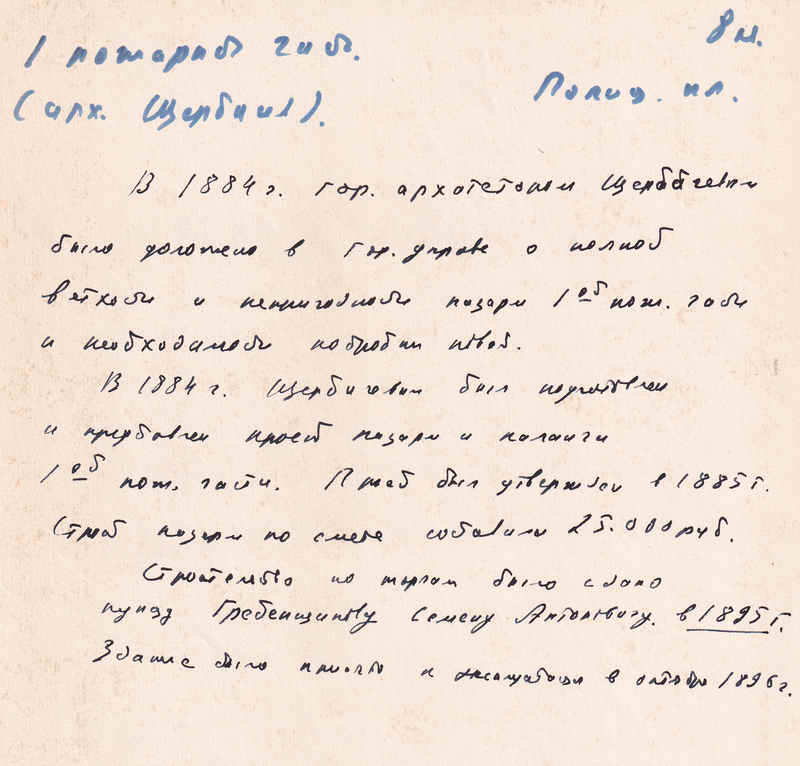 1 пожарная часть.
8 м.
(арх. Щербачев).
Полиц. пл.
В 1884 г. гор. архитектором Щербачевым
было доложено в гор. управе о полной
ветхости и непригодности казармы 1ой пож. части
и необходимости постройки новой.
В 1884 г. Щербачевым был подготовлен
и представлен проект казармы и каланчи
1ой пож. части. Проект был утвержден в 1885 г.
Строит. казармы по смете составила 25.000 руб.
Строительство по торгам было сдано
купцу Гребенщикову Семену Антоновичу в 1895 г.
Здание было принято к эксплуатации в октябре 1896 г.